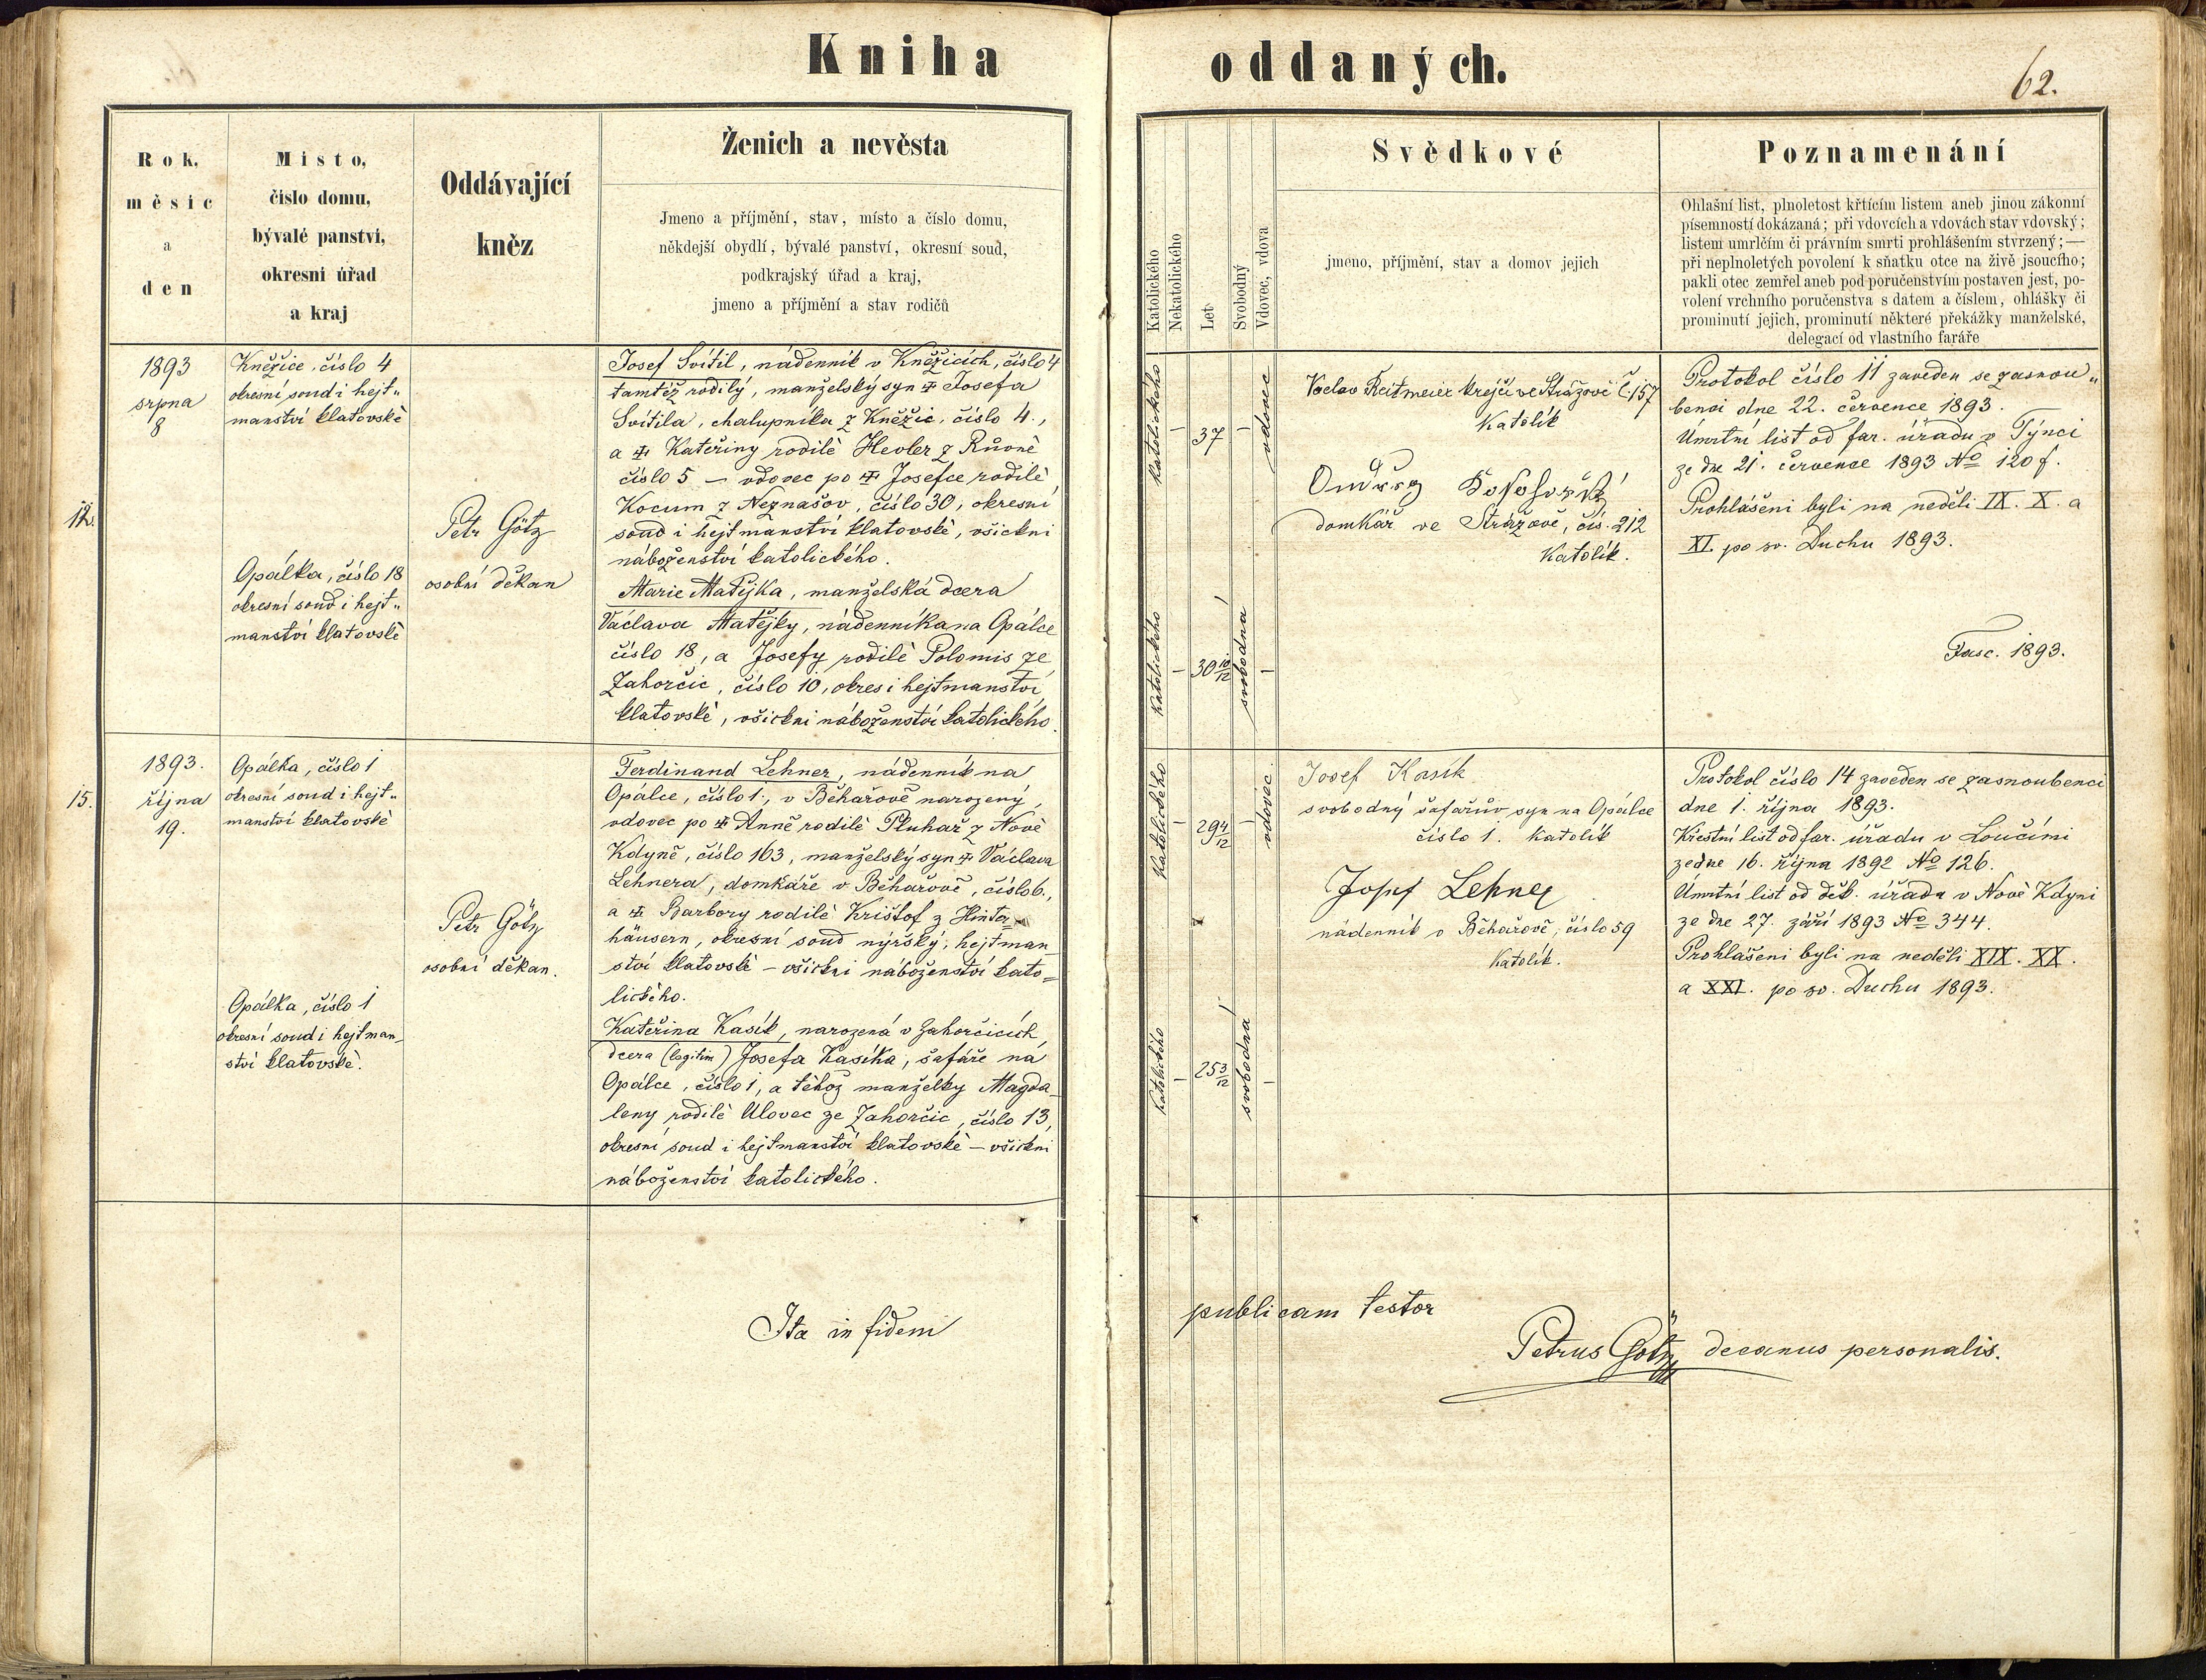 Kniha oddaných.
62.
Rok, měsíc a den
Místo, číslo domu, bývalé panství, okresní úřad a kraj
Oddávající kněz
Ženich a nevěsta
Jmeno a příjmění, stav, místo a číslo domu,
někdejší obydlí, bývalé panství, okresní soud,
podkrajský úřad a kraj,
jmeno a příjmění a stav rodičů
Katolického
Nekatolického
Let
Svobodný
Vdovec, vdova
Svědkové
jmeno, příjmění, stav a domov jejich
Poznamenání
Ohlašní list, plnoletost křtícím listem aneb jinou zákonní
písemností dokázaná; při vdovcích a vdovách stav vdovský;
listem umrlčím či právním smrti prohlášením stvrzený; —
při neplnoletých povolení k sňatku otce na živě jsoucího;
pakli otec zemřel aneb pod poručenstvím postaven jest, po-
volení vrchního poručenstva s datem a číslem, ohlášky či
prominutí jejich, prominutí některé překážky manželské,
delegací od vlastního faráře
1893
srpna
8
Kněžice, číslo 4
okresní soud i hejt„
manství klatovské
Opálka, číslo 18
okresní soud i hejt„
manství klatovské
Petr Götz
osobní děkan
Josef Svítil, nádenník v Kněžicích, číslo 4
tamtéž rodilý, manželský syn ✠ Josefa
Svítila, chalupníka z Kněžic, číslo 4.,
a ✠ Kateřiny rodilé Hevler z Růvně
číslo 5 — vdovec po ✠ Josefce rodilé
Kocum z Neznašov, číslo 30, okresní
soud i hejtmanství klatovské, všickni
náboženství katolického.
Marie Matějka, manželská dcera
Václava Matějky, nádenníka na Opálce
číslo 18, a Josefy rodilé Polomis ze
Zahorčic, číslo 10, okres i hejtmanství
klatovské, všickni náboženství katolického.
katolického
—
37
—
vdovec
katolického
—
30 10/12
svobodná
—
Vaclav Reitmeier krejčí ve Strážově Č. 157
Katolík
Ondřeg
domkář ve Strážově, čís. 212
Katolík.
Protokol číslo 11 zaveden se zasnou„
benci dne 22. července 1893.
Úmrtní list od far. úřadu v Týnci
ze dne 21. července 1893 No 120 f.
Prohlášeni byli na neděli IX. X. a
XI. po sv. Duchu 1893.
Fasc. 1893.
15.
1893.
října
19.
Opálka, číslo 1
okresní soud i hejt„
manství klatovské
Opálka, číslo 1
okresní soud i hejtman_
ství klatovské.
Petr Götz
osobní děkan.
Ferdinand Lehner, nádenník na
Opálce, číslo 1., v Běhařově narozený,
vdovec po ✠ Anně rodilé Pluhař z Nové
Kdyně, číslo 163, manželský syn ✠ Václava
Lehnera, domkáře v Běhařově, číslo 6.,
a ✠ Barbory rodilé Krištof z Hinter-
häusern, okresní soud nýrský, hejtman
ství klatovské — všickni náboženství kato=
lického.
Kateřina Kasík, narozená v Zahorčicích,
dcera (legitim) Josefa Kasíka, šafáře na
Opálce, číslo 1, a téhož manželky Magda_
leny rodilé Ulovec ze Zahorčic, číslo 13,
okresní soud i hejtmanství klatovské — všickni
náboženství katolického.
katolického
—
29 4/12
—
vdovec
katolického
—
25 3/12
svobodná
—
Josef Kasík
svobodný šafařův syn na Opálce
číslo 1. Katolík
Josef Lehner
nádenník v Běhařově, číslo 59
Katolík.
Protokol číslo 14 zaveden se zasnoubenci
dne 1. října 1893.
Křestní list od far. úřadu v Loučími
ze dne 16. října 1892 No 126.
Úmrtní list od děk. úřadu v Nové Kdyni
ze dne 27. září 1893 No 344.
Prohlášeni byli na neděli XIX. XX.
a XXI. po sv. Duchu 1893.
Ita in fidem publicam testor
Petrus Götz decanus personalis.